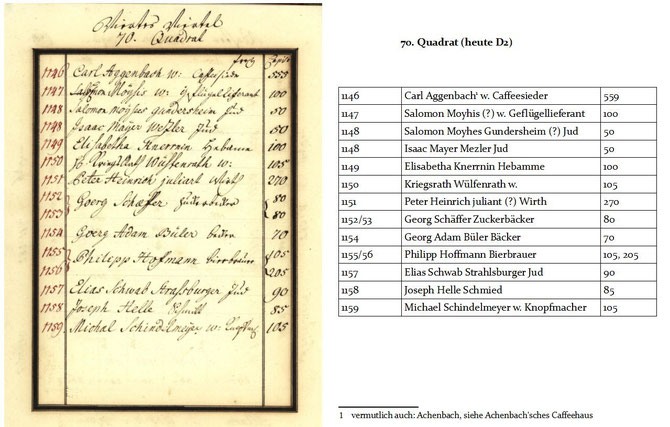 Viertes Viertel
70. Quadrat
1146 Carl Aggenbach w: Caffesieder 559
1147 Salomon Moÿses w: geflügellieferant 100
1148 Salomon Moÿses gundersheim Jud 50
1148 Isaac Maÿer Jud 50
1149 Elisabetha Knerrnin Hebamme 100
1150 w: 105
1151 Peter Heinrich juliart Wirth 270
1152 80
1153 Georg Schæffer 80
1154 Goerg Adam Büler becker 70
1155 105
Philipp Hofmann bierbrauer
1156 205
1157 Elias Schwab Straßburger Jud 90
1158 Joseph Helle Schmitt 85
1159 Michal Schindelmeÿer w: 105
70. Quadrat (heute D2)
1146 Carl Aggenbach¹ w. Caffeesieder 559
1147 Salomon Moyhis (?) w. Geflügellieferant 100
1148 Salomon Moyhes Gundersheim (?) Jud 50
1148 Isaac Mayer Mezler Jud 50
1149 Elisabetha Knerrnin Hebamme 100
1150 Kriegsrath Wülfenrath w. 105
1151 Peter Heinrich juliant (?) Wirth 270
1152/53 Georg Schäffer Zuckerbäcker 80
1154 Georg Adam Büler Bäcker 70
1155/56 Philipp Hoffmann Bierbrauer 105, 205
1157 Elias Schwab Strahlsburger Jud 90
1158 Joseph Helle Schmied 85
1159 Michael Schindelmeyer w. Knopfmacher 105
1 vermutlich auch: Achenbach, siehe Achenbach'sches Caffeehaus